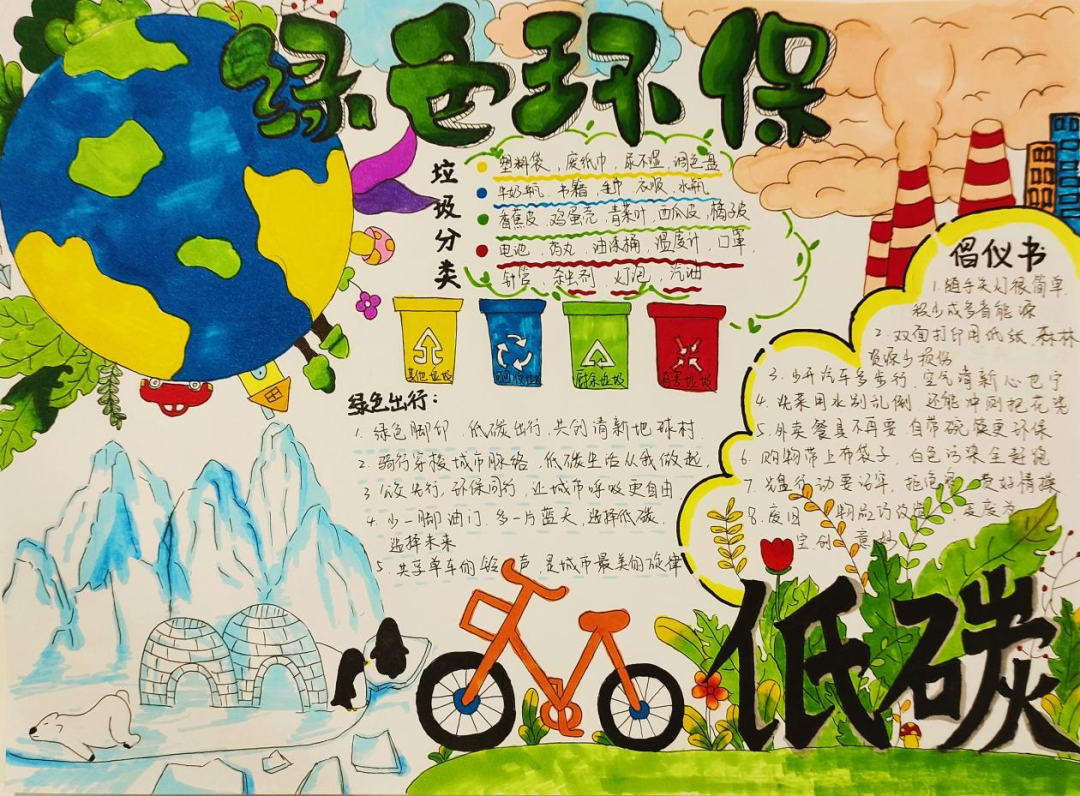 绿色环保
垃圾分类
塑料袋、废纸巾、尿不湿、调色盘
牛奶瓶、书籍、毛巾、衣服、水瓶
香蕉皮、鸡蛋壳、青菜叶、西瓜皮、橘子皮
电池、药丸、油漆桶、温度计、口罩、
针管、杀虫剂、灯泡、汽油
其他垃圾
可回收垃圾
厨余垃圾
有害垃圾
绿色出行：
1. 绿色脚印，低碳出行，共创清新地球村
2. 骑行穿梭城市脉络，低碳生活从我做起，
3. 公交先行，环保同行，让城市呼吸更自由
4. 少一脚油门，多一片蓝天，选择低碳，
选择未来
5. 共享单车的铃声，是城市最美的旋律
倡仪书
1. 随手关灯很简单
积少成多省能源
2. 双面打印用低纸，森林
资源少损伤
3. 少开汽车多步行，空气清新心也宁
4. 洗菜用水别乱倒，还能冲厕把花浇
5. 外卖餐具不再要，自带碗筷更环保
6. 购物带上布袋子，白色污染全赶跑
7. 光盘行动要记牢，拒绝
更好情操
8. 废旧物品巧改造，变废为
宝创意妙
低碳